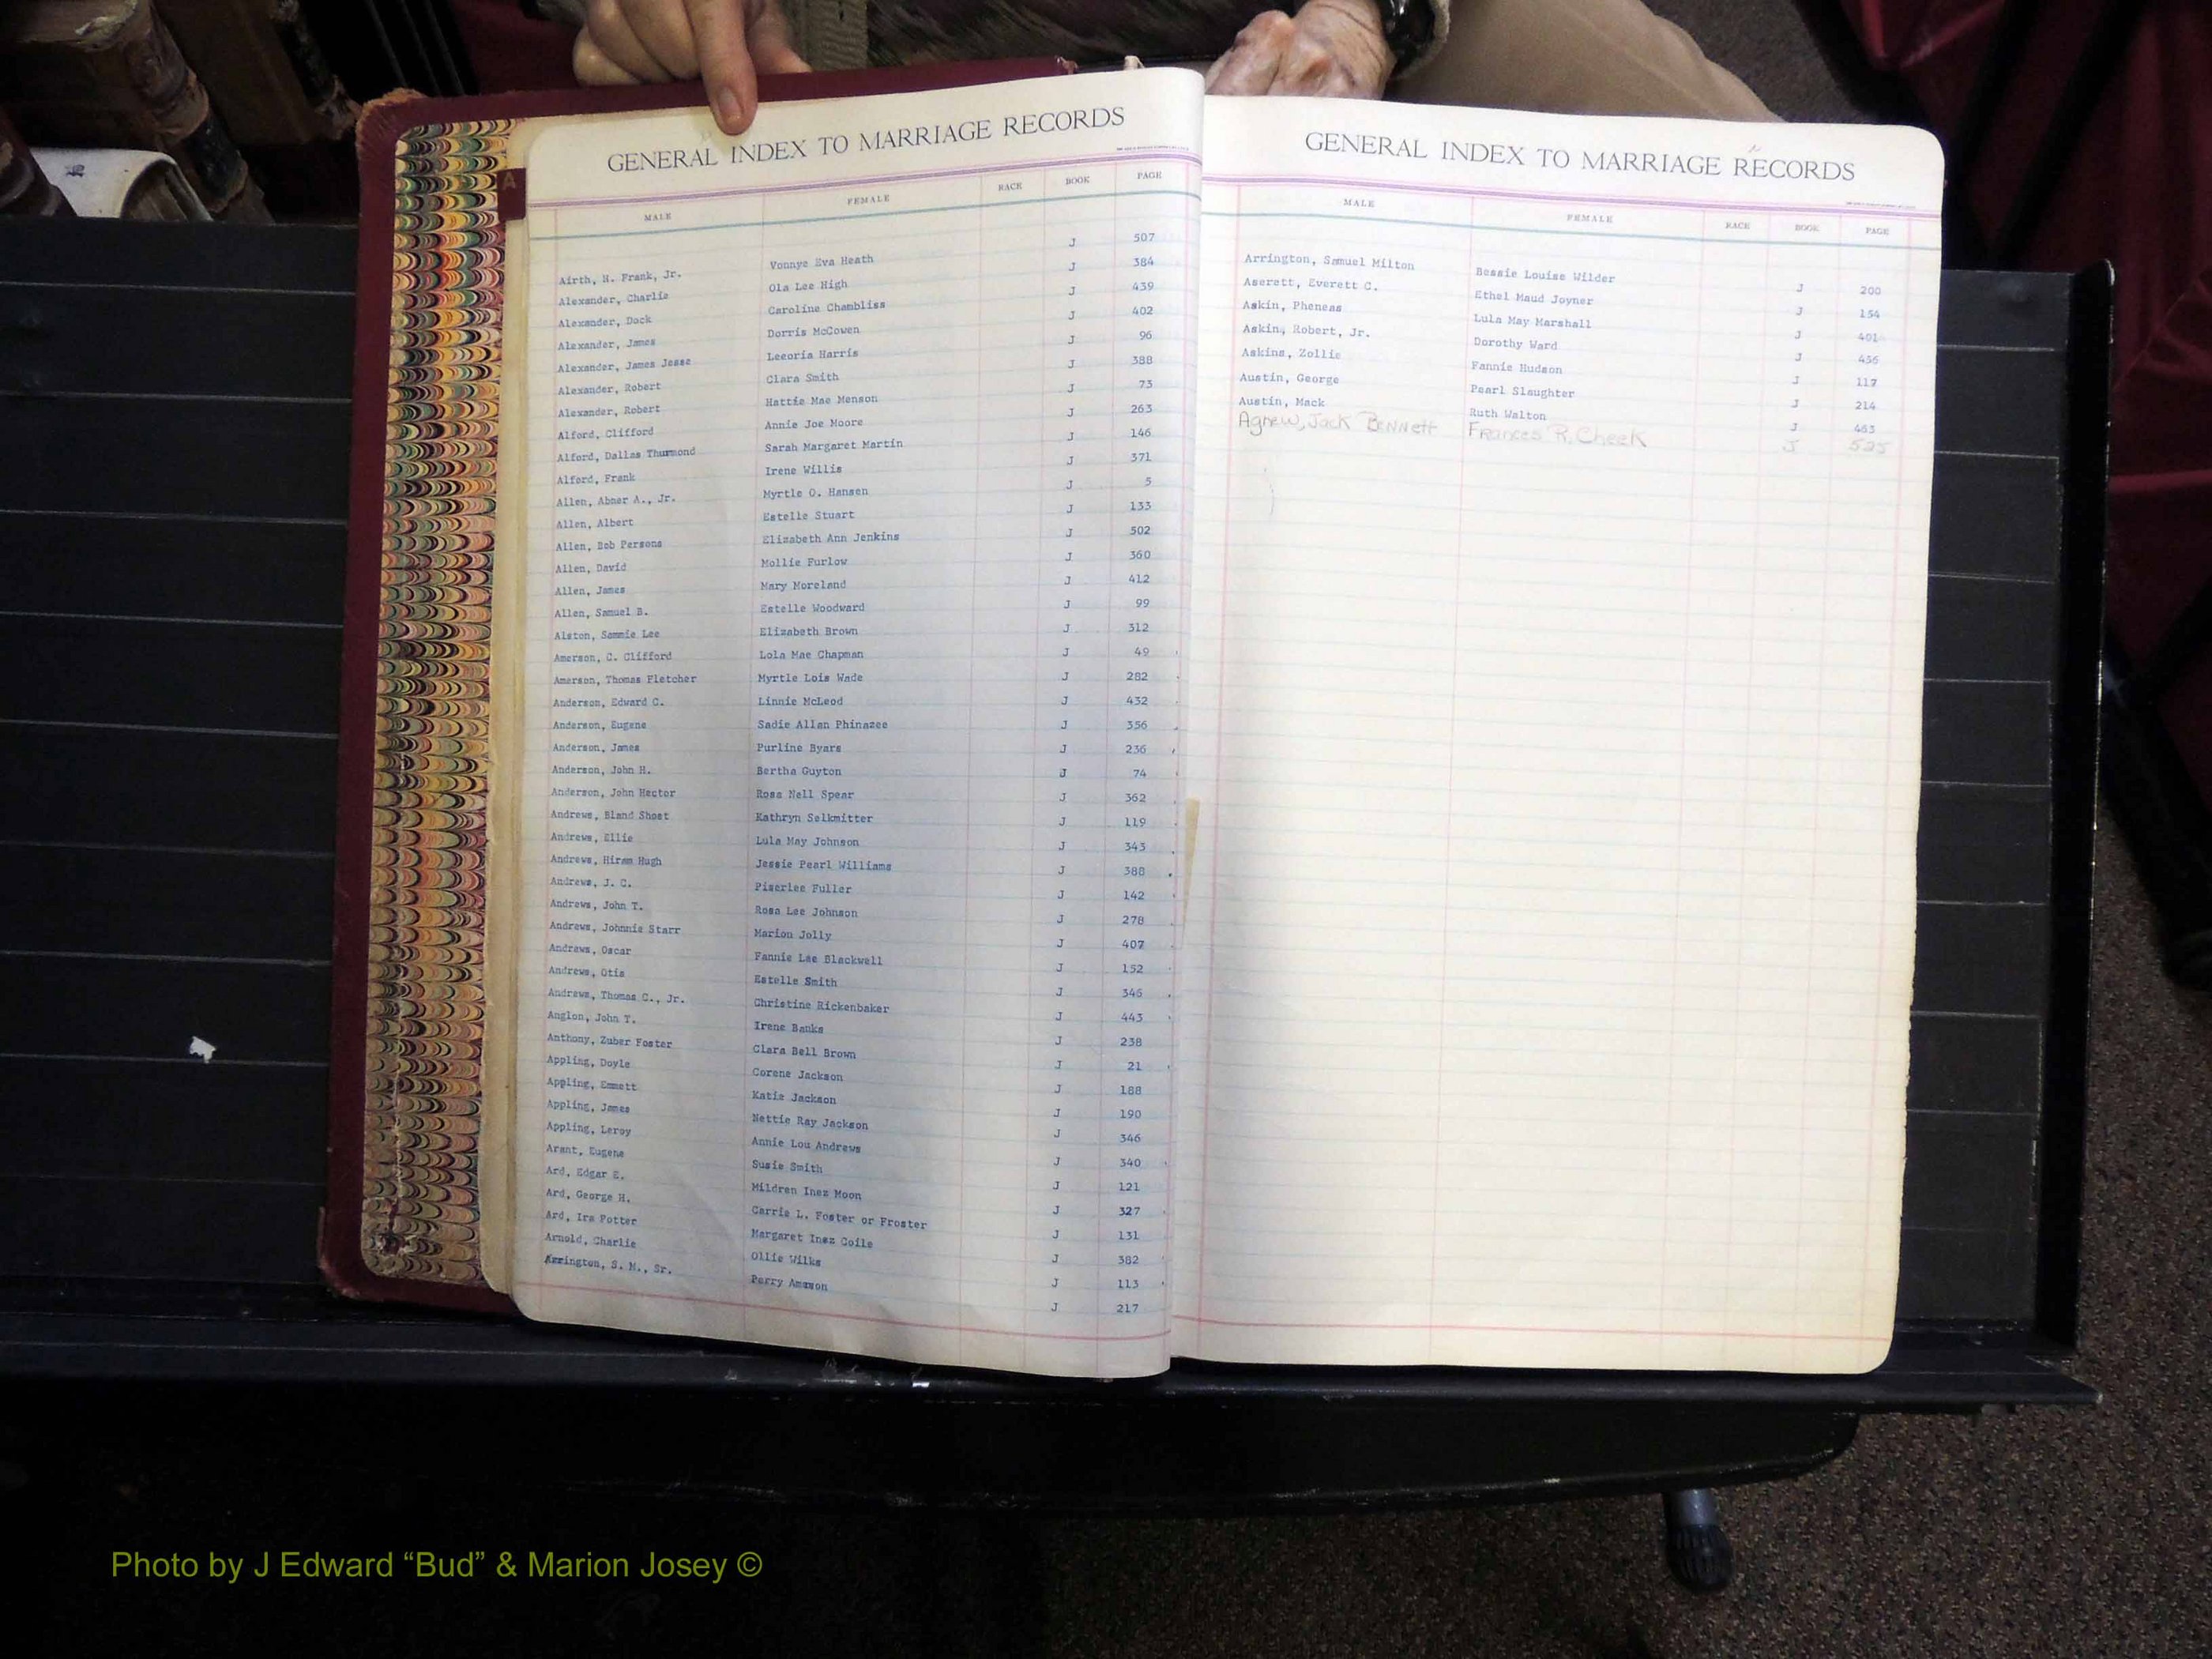 A
GENERAL INDEX TO MARRIAGE RECORDS
MALE FEMALE RACE BOOK PAGE
Airth, H. Frank, Jr. Vonnye Eva Heath J 507
Alexander, Charlie Ola Lee High J 384
Alexander, Dock Caroline Chambliss J 439
Alexander, James Dorris McCowen J 402
Alexander, James Jesse Leeoria Harris J 96
Alexander, Robert Clara Smith J 388
Alexander, Robert Hattie Mae Menson J 73
Alford, Clifford Annie Joe Moore J 263
Alford, Dallas Thurmond Sarah Margaret Martin J 146
Alford, Frank Irene Willis J 371
Allen, Abner A., Jr. Myrtle O. Hansen J 5
Allen, Albert Estelle Stuart J 133
Allen, Bob Persons Elizabeth Ann Jenkins J 502
Allen, David Mollie Furlow J 360
Allen, James Mary Moreland J 412
Allen, Samuel B. Estelle Woodward J 99
Alston, Sammie Lee Elizabeth Brown J 312
Amerson, C. Clifford Lola Mae Chapman J 49
Amerson, Thomas Fletcher Myrtle Lois Wade J 282
Anderson, Edward C. Linnie McLeod J 432
Anderson, Eugene Sadie Allen Phinazee J 356
Anderson, James Purline Byars J 236
Anderson, John H. Bertha Guyton J 74
Anderson, John Hector Rosa Nell Spear J 362
Andrews, Bland Shoat Kathryn Selkmitter J 119
Andrews, Ellie Lula May Johnson J 343
Andrews, Hiram Hugh Jessie Pearl Williams J 388
Andrews, J. C. Piserlee Fuller J 142
Andrews, John T. Rosa Lee Johnson J 278
Andrews, Johnnie Starr Marion Jolly J 407
Andrews, Oscar Fannie Lee Blackwell J 152
Andrews, Otis Estelle Smith J 346
Andrews, Thomas C., Jr. Christine Rickenbaker J 443
Anglon, John T. Irene Banks J 238
Anthony, Zuber Foster Clara Bell Brown J 21
Appling, Doyle Corene Jackson J 188
Appling, Emmett Katie Jackson J 190
Appling, James Nettie Ray Jackson J 346
Appling, Leroy Annie Lou Andrews J 340
Arant, Eugene Susie Smith J 121
Ard, Edgar E. Mildren Inez Moon J 327
Ard, George H. Carrie L. Foster or Froster J 131
Ard, Ira Potter Margaret Inez Coile J 382
Arnold, Charlie Ollie Wilks J 113
Arrington, S. M., Sr. Perry Amason J 217
GENERAL INDEX TO MARRIAGE RECORDS
MALE FEMALE RACE BOOK PAGE
Arrington, Samuel Milton Bessie Louise Wilder J 200
Aserett, Everett C. Ethel Maud Joyner J 154
Askin, Pheneas Lula May Marshall J 401
Askin, Robert, Jr. Dorothy Ward J 456
Askins, Zollie Fannie Hudson J 117
Austin, George Pearl Slaughter J 214
Austin, Mack Ruth Walton J 463
Agnew, Jack Bennett Frances R. Cheek J 525
Photo by J Edward “Bud” & Marion Josey ©